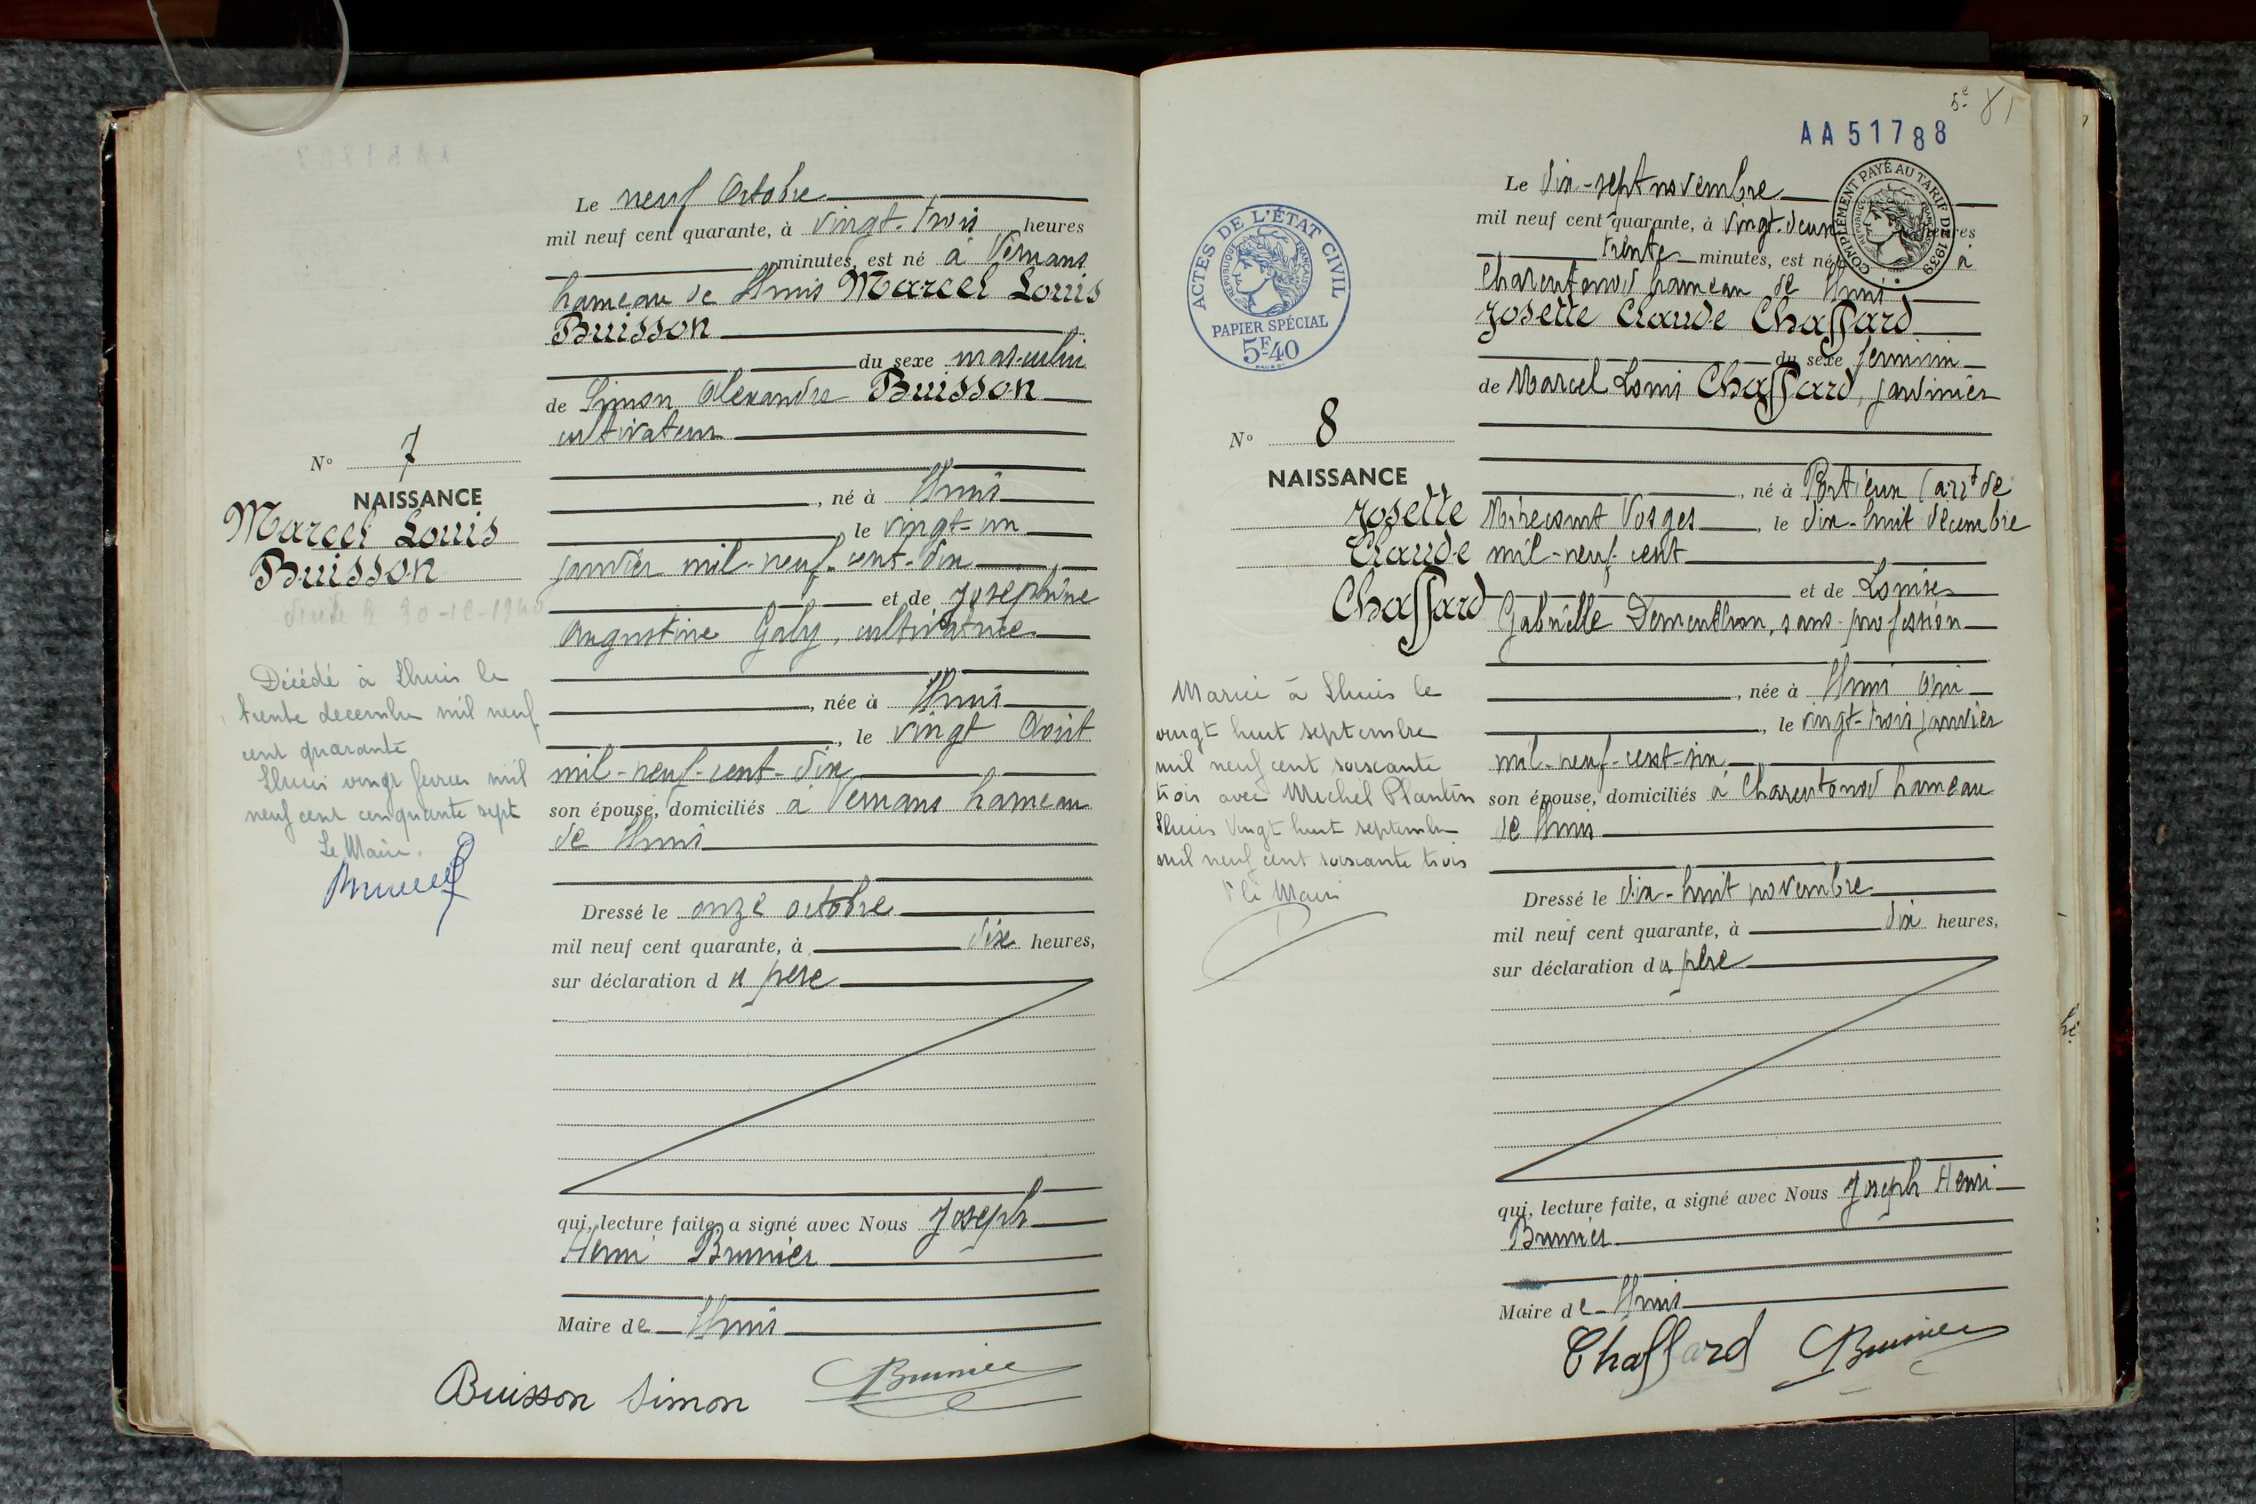 Le neuf Octobre
mil neuf cent quarante, à vingt-trois heures
minutes, est né à Vernans
hameau de Lhuis Marcel Louis
Buisson
du sexe masculin
de Simon Alexandre Buisson
cultivateur
N° 7
NAISSANCE
Marcel Louis
Buisson
, né à Lhuis
le vingt-un
janvier mil-neuf-cent-dix
et de Joséphine
Augustine Galy, cultivatrice
, née à Lhuis
, le vingt Août
mil-neuf-cent-dix
son épouse, domiciliés à Vernans hameau
de Lhuis
décédé le 30-12-1940
Décédé à Lhuis le
trente decembre mil neuf
cent quarante
Lhuis vingt fevrier mil
neuf cent cinquante sept
Le Maire.
Dressé le onze octobre
mil neuf cent quarante, à dix heures,
sur déclaration du père
qui, lecture faite, a signé avec Nous Joseph
Henri Brunier
Maire de Lhuis
Buisson Simon Brunier
5e 81
AA51788
COMPLÉMENT PAYÉ AU TARIF DE 1939
ACTES DE L'ÉTAT CIVIL
REPUBLIQUE FRANÇAISE
PAPIER SPÉCIAL
5F40
Le dix-sept novembre
mil neuf cent quarante, à vingt-deux heures
trente minutes, est née à
Charentonod hameau de Lhuis
Josette Claude Chaffard
du sexe feminin
de Marcel Louis Chaffard, jardinier
N° 8
NAISSANCE
Josette
Claude
Chaffard
, né à Portieux (arrt de
Mirecourt Vosges , le dix-huit décembre
mil-neuf-cent
et de Louise
Gabrielle Dementhon, sans-profession
, née à Lhuis Ain
, le vingt-trois janvier
mil-neuf-cent-six
son épouse, domiciliés à Charentonod hameau
de Lhuis
Mariée à Lhuis le
vingt huit septembre
mil neuf cent soixante
trois avec Michel Plantin
Lhuis Vingt huit septembre
mil neuf cent soixante trois
Le Maire
Dressé le dix-huit novembre
mil neuf cent quarante, à dix heures,
sur déclaration du père
qui, lecture faite, a signé avec Nous Joseph Henri
Brunier
Maire de Lhuis
Chaffard Brunier